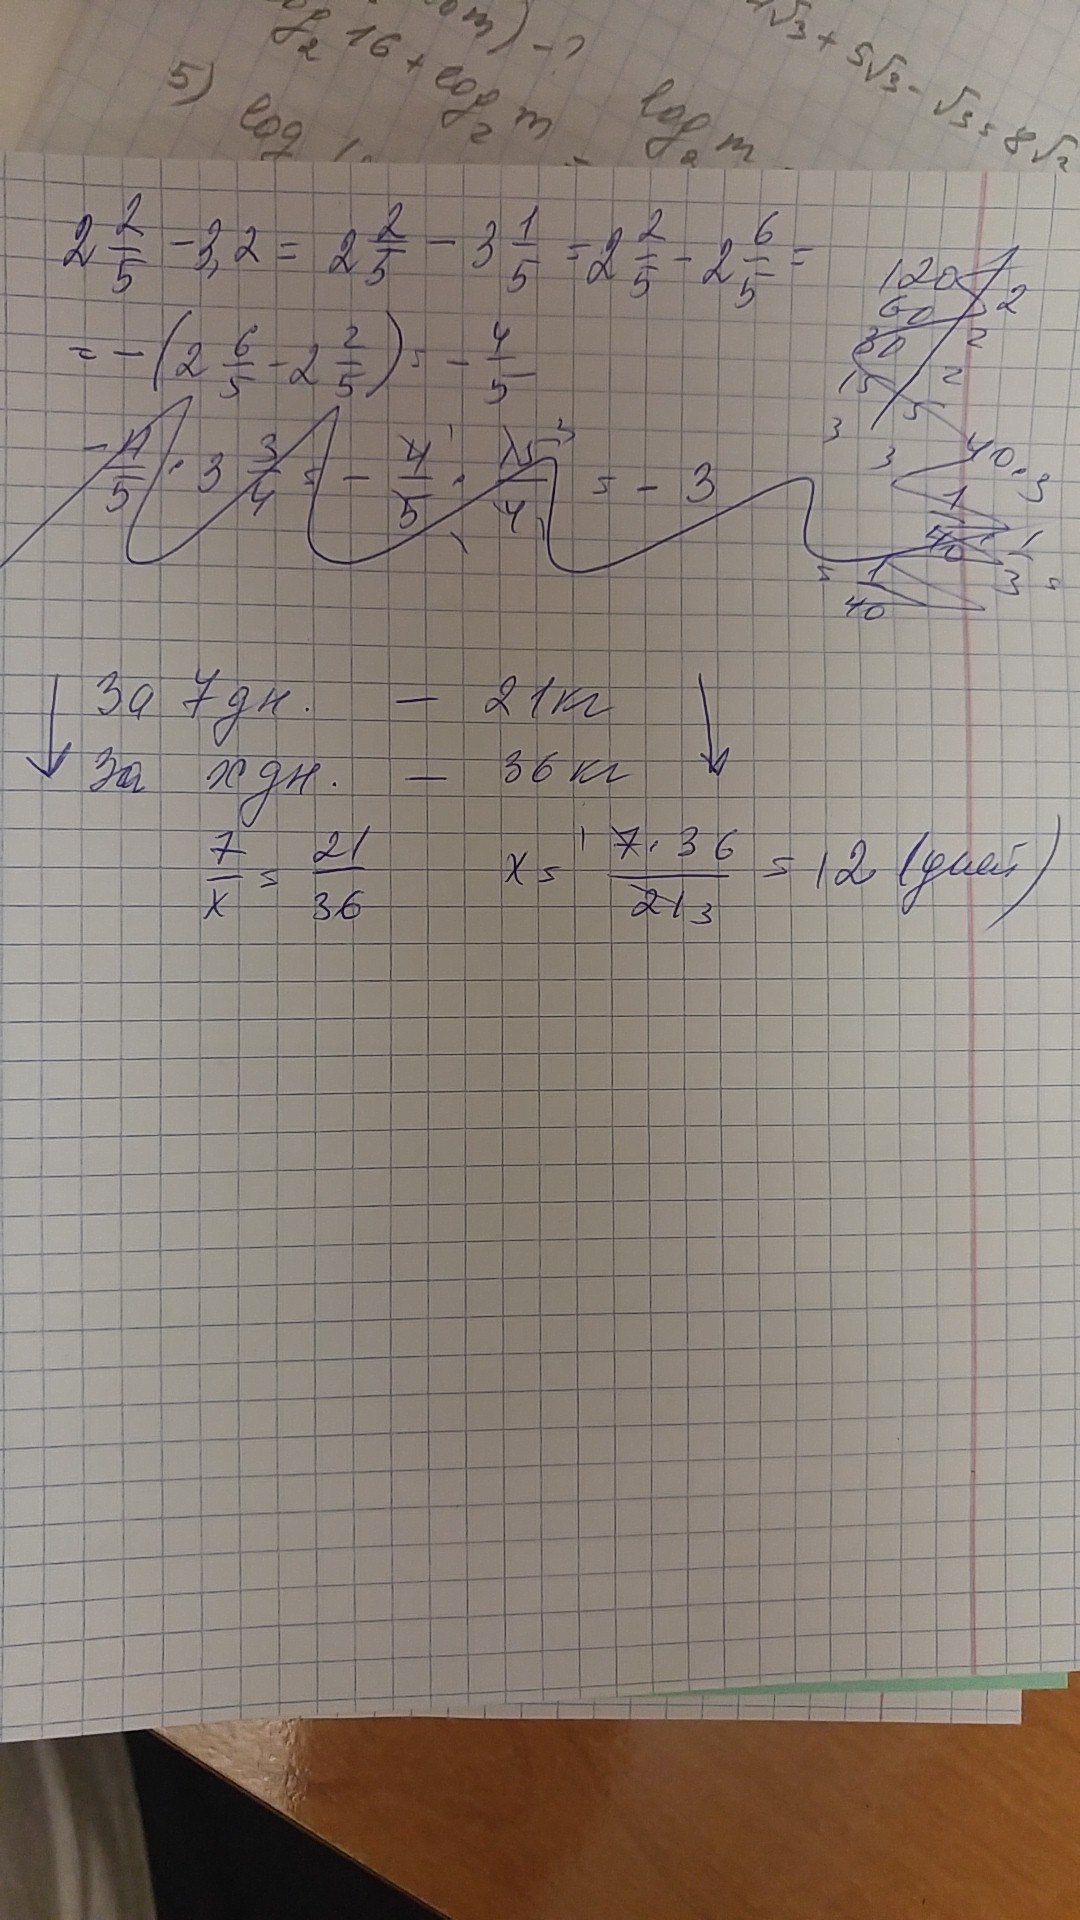 log₂ 16 + log₂ m
4√3 + 5√3 - √3 = 8√3
5) log
log₂ m
2 2/5 - 3,2 = 2 2/5 - 3 1/5 = 2 2/5 - 2 6/5 =
= - (2 6/5 - 2 2/5) = - 4/5
- 4/5 · 3 3/4 = - 4/5 · 15/4 = - 3
120 2
60 2
30 2
15 5
3
3 40 · 3
1/40
1/3
= 1/40
За 7 дн. — 21 кг
За х дн. — 36 кг
7/х = 21/36 х = 7 · 36/21 = 12 (дней)